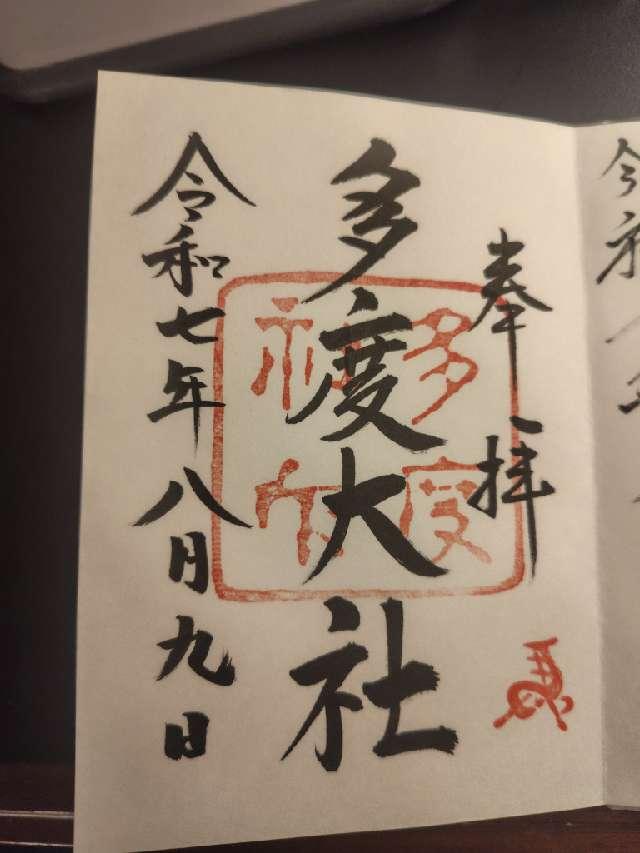 奉拝
多度大社
令和七年八月九日
多度
神社
馬
今和